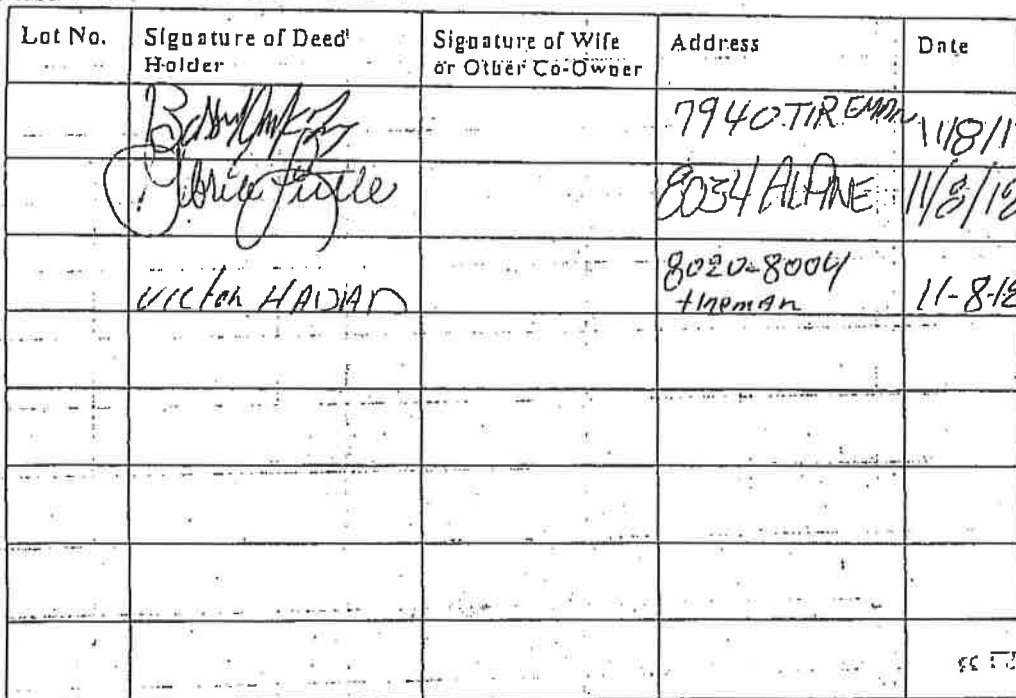 Lot No.
Signature of Deed Holder
Signature of Wife or Other Co-Owner
Address
Date
7940 TIREMAN
11/8/1
8034 ALPINE
11/8/18
Victor HADDAD
8020-8004
tireman
11-8-18